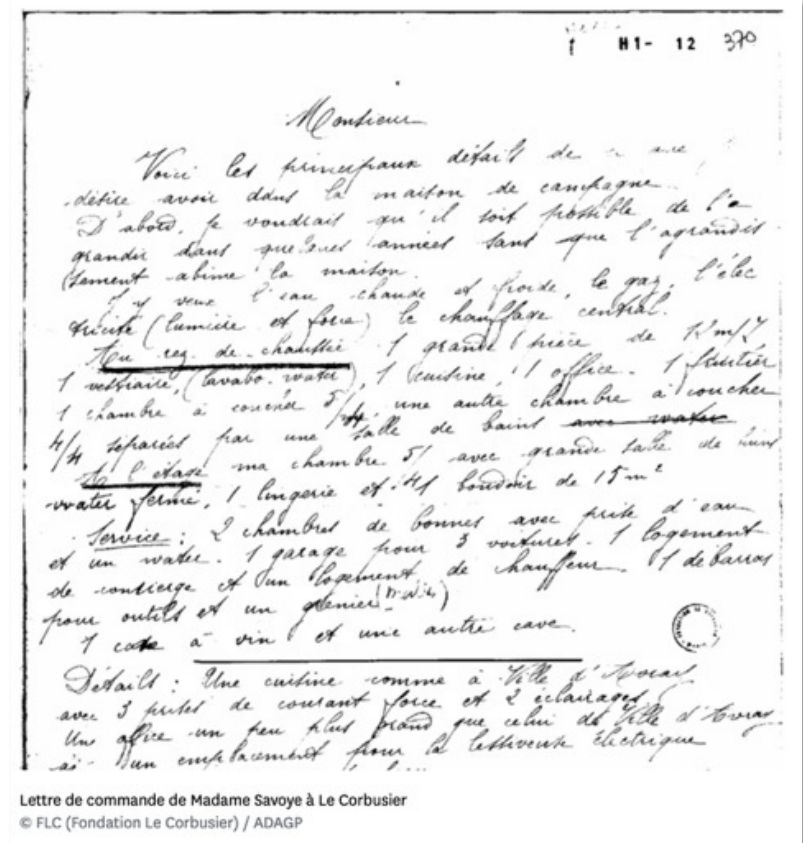 H1- 12 370
Monsieur
Voici les principaux détails de
désire avoir dans la maison de campagne.
D'abord, je voudrais qu'il soit possible de l'a
grandir dans quelques années sans que l'agrandis
sement abîme la maison.
J'y veux l'eau chaude et froide, le gaz, l'élec
tricité (lumière et force) le chauffage central.
Au rez-de-chaussée 1 grande pièce de 12 m/7
1 vestiaire, (lavabo. water), 1 cuisine, 1 office. 1 fruitier
1 chambre à coucher 5/4, une autre chambre à coucher
4/4 séparées par une salle de bains avec water
A l'étage ma chambre 5/ avec grande salle de bains
water fermé, 1 lingerie et 1 boudoir de 15 m²
Service : 2 chambres de bonnes avec prise d'eau
et un water. 1 garage pour 3 voitures. 1 logement
de concierge et un logement de chauffeur. 1 débarras
pour outils et un grenier
1 cave à vin et une autre cave.
Détails : Une cuisine comme à Ville d'Avray
avec 3 prises de courant force et 2 éclairages
Un office un peu plus grand que celui de Ville d'Avray
un emplacement pour la lessiveuse électrique
Lettre de commande de Madame Savoye à Le Corbusier
© FLC (Fondation Le Corbusier) / ADAGP